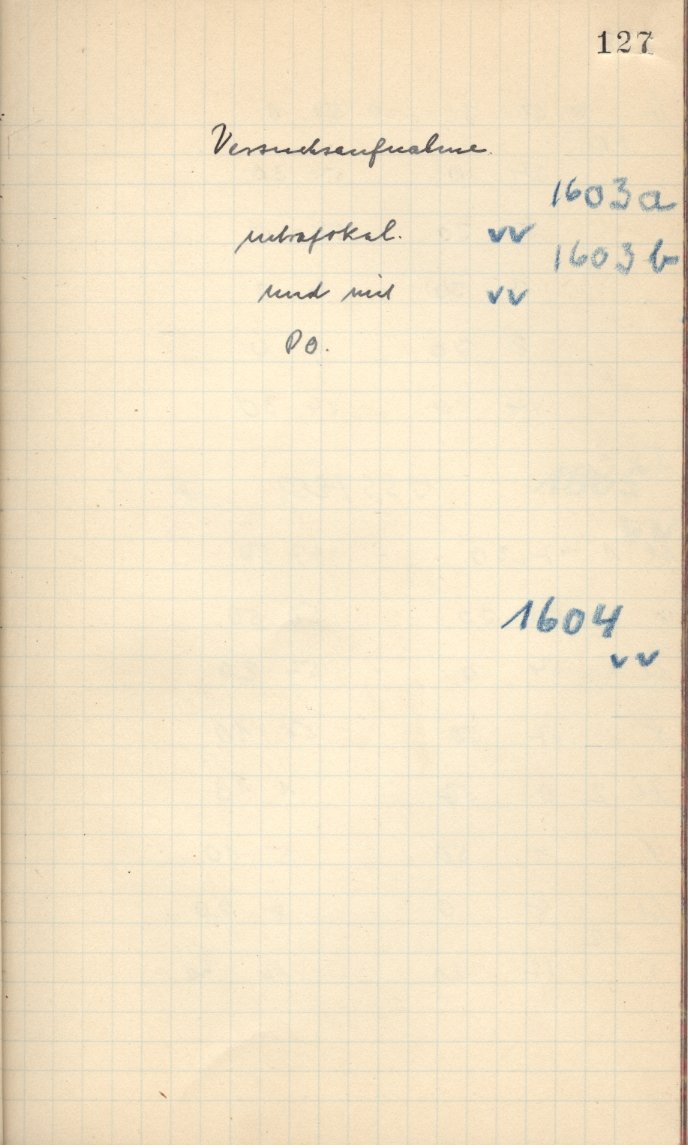 127
Versuchsaufnahme.
1603a
intrafokal. vv
1603b
und mit vv
PO.
1604
vv